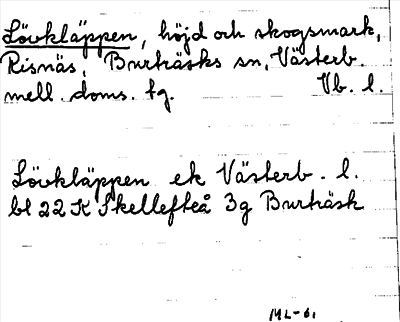 Lövkläppen, höjd och skogsmark,
Risnäs, Burträsks sn, Västerb.
mell. doms. tg. Vb. l.
Lövkläppen ek Västerb. l.
bl 22 K Skellefteå 3g Burträsk